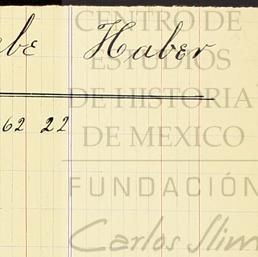 CENTRO DE
ESTUDIOS
DE HISTORIA
DE MEXICO
FUNDACIÓN
Carlos Slim
Haber
62 22